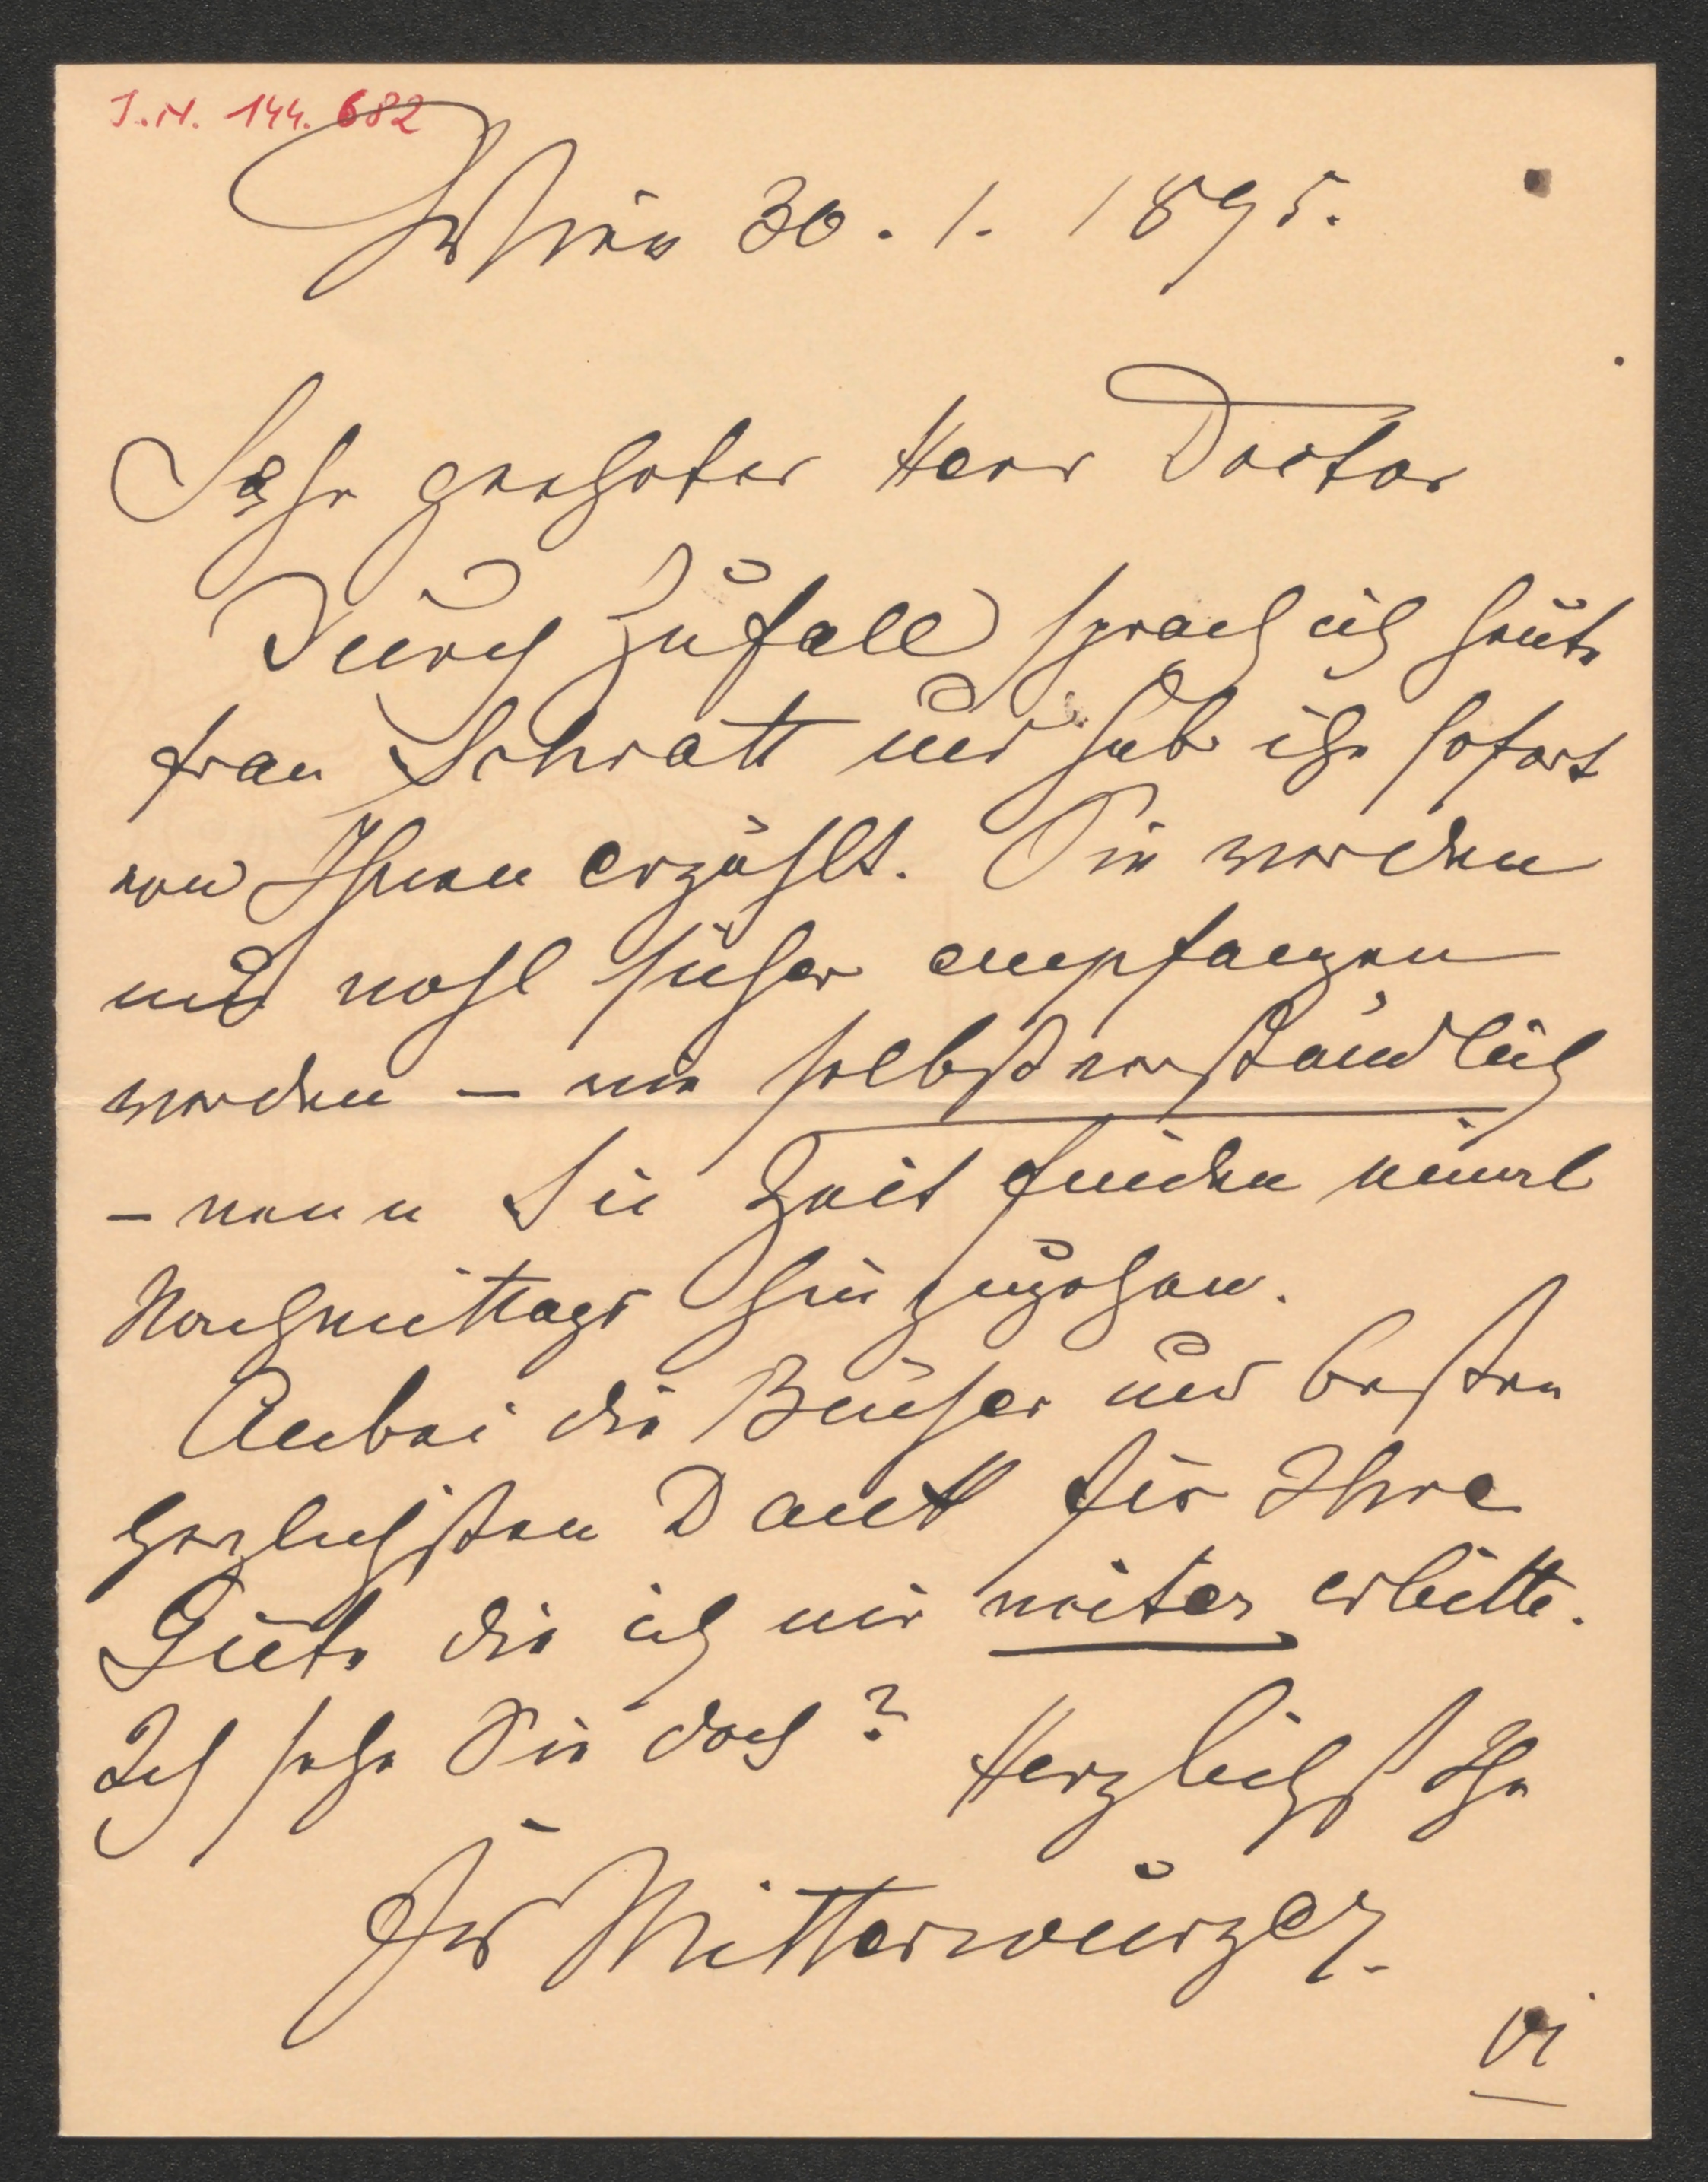 I.N. 144.682
Wien 30. 1. 1895.
Sehr geehrter Herr Doctor
Durch Zufall sprach ich heute
Frau Schratt und hab ihr sofort
von Ihnen erzählt. Sie werden
und wohl sicher empfangen
werden – wie selbstverständlich
– wenn Sie Zeit finden einml
Nachmittags hinzugehen.
Anbei die Bücher und besten
herzlichsten Dank für Ihre
Güte die ich mir weiter erbitte.
Ich sehe Sie doch? Herzlichst Ihr
Fr Mitterwurzer.